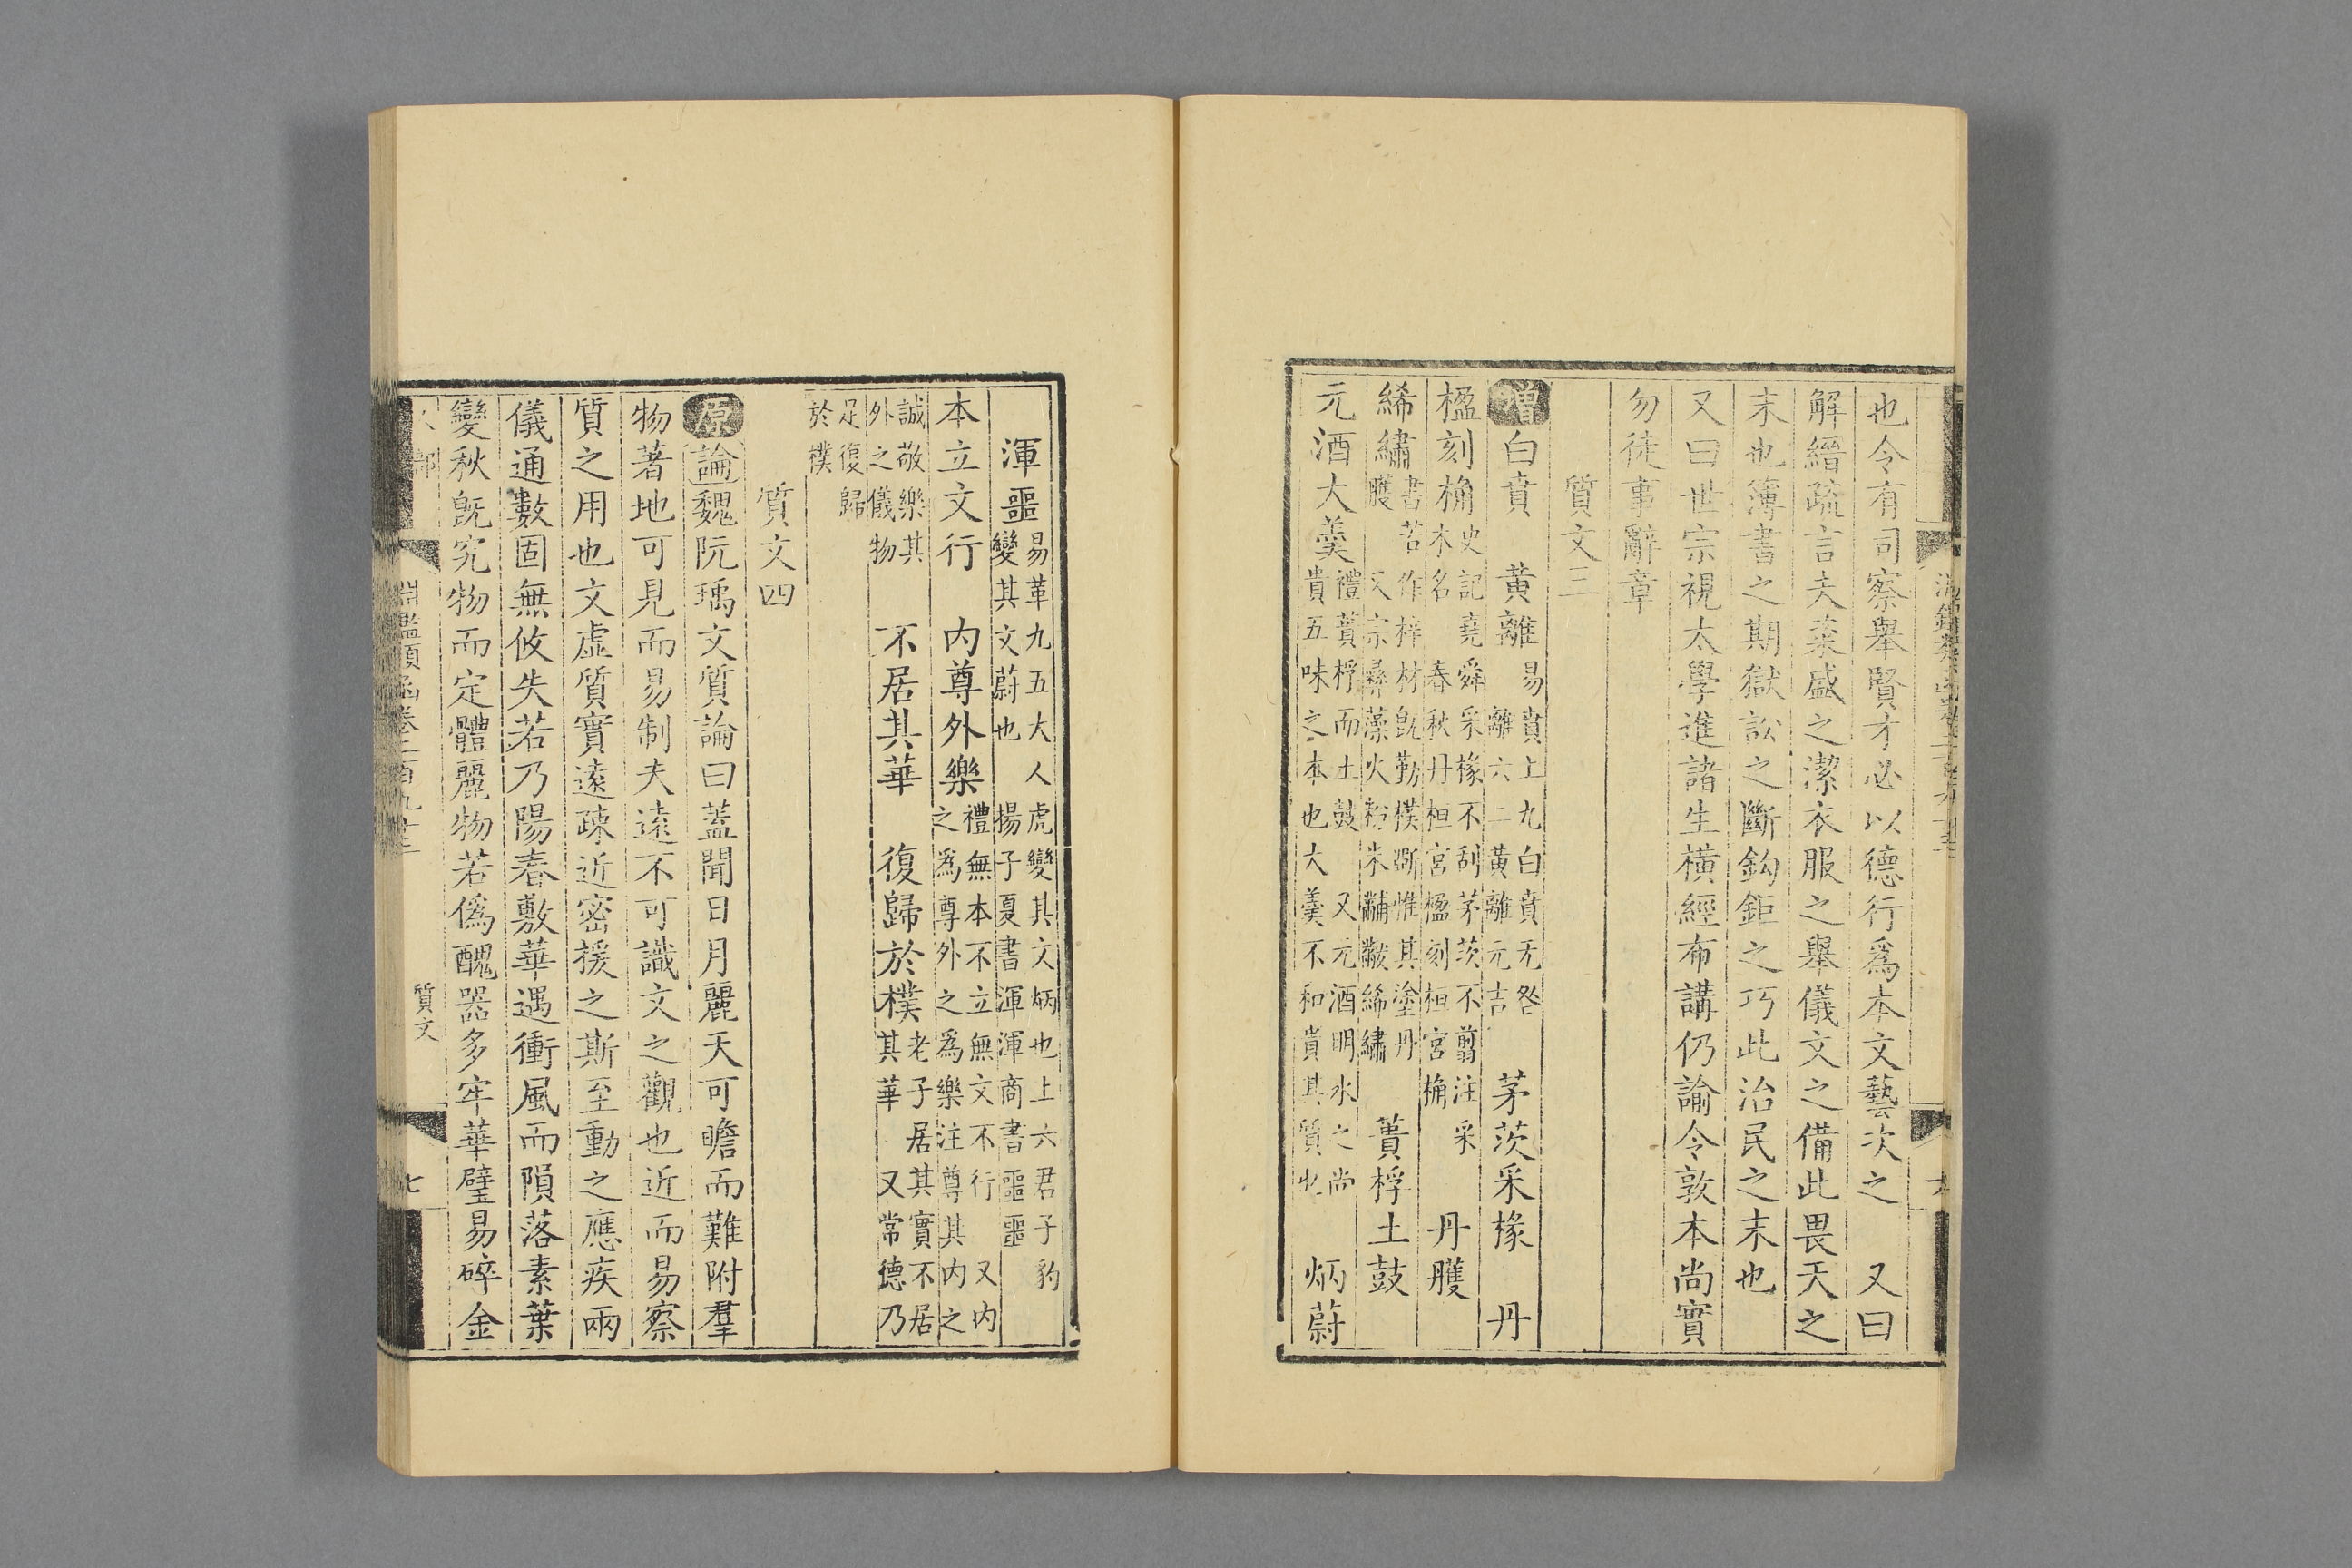 也令有司察舉賢才必以德行爲本文藝次之　又曰
解縉疏言夫粢盛之潔衣服之舉儀文之備此畏天之
末也簿書之期獄訟之斷鈎鉅之巧此治民之末也
又曰世宗視太學進諸生橫經布講仍諭令敦本尚實
勿徒事辭章
質文三
增白賁　黄離易賁上九白賁无咎離六二黃離元吉　茅茨采椽　丹
楹刻桷史記堯舜采椽不刮茅茨不翦注采木名　春秋丹桓宮楹刻桓宮桷　丹雘
絺繡書若作梓材旣勤樸斲惟其塗丹雘　又宗彝藻火粉米黼黻絺繡　蕢桴土鼓
元酒大羹禮蕢桴而土鼓　又元酒明水之尚貴五味之本也大羹不和貴其質也　炳蔚
渾噩易革九五大人虎變其文炳也上六君子豹變其文蔚也　揚子夏書渾渾商書噩噩
本立文行　内尊外樂禮無本不立無文不行　又内之爲尊外之爲樂注尊其内之
誠敬樂其外之儀物　不居其華　復歸於樸老子居其實不居其華　又常德乃
足復歸於樸
質文四
原論魏阮瑀文質論曰蓋聞日月麗天可瞻而難附羣
物著地可見而易制夫遠不可識文之觀也近而易察
質之用也文虚質實遠疎近密援之斯至動之應疾兩
儀通數固無攸失若乃陽春敷華遇衝風而隕落素葉
變秋旣究物而定體麗物若僞醜器多牢華璧易碎金
淵鑑類函卷二百九十三
質文
七